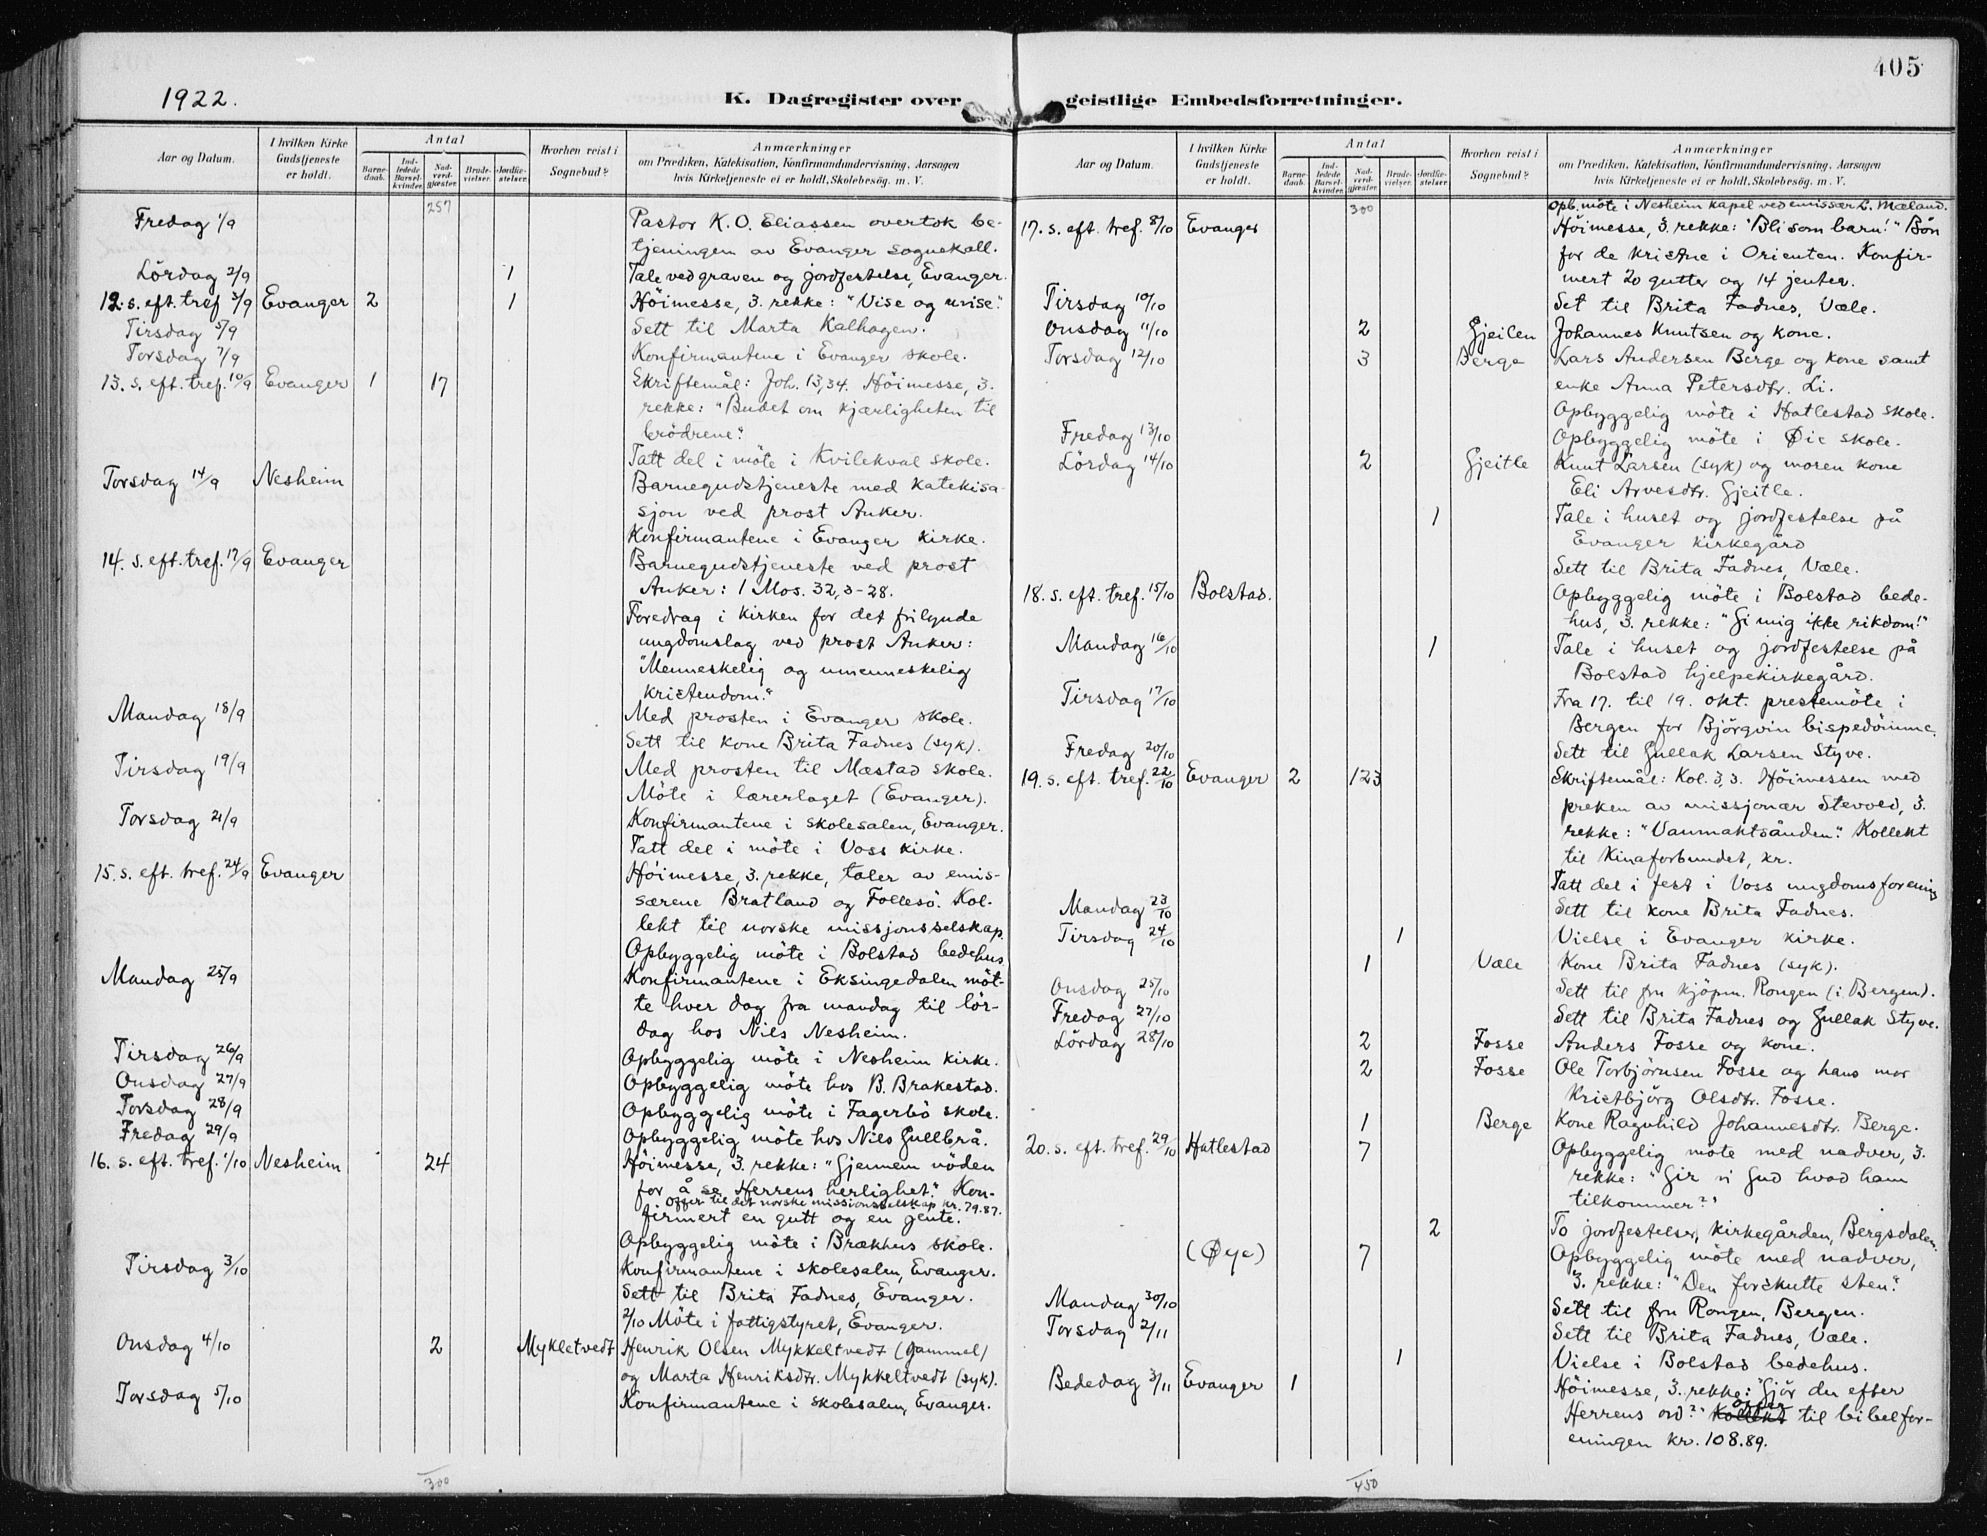 405
1922.
K. Dagregister over geistlige Embedsforretninger.
Aar og Datum.
I hvilken Kirke Gudstjeneste er holdt.
Antal
Barnedaab.
Indledede Barselkvinder.
Nadverdgjæster.
Brudevielser.
Jordfæstelser.
Hvorhen reist i Sognebud?
Anmærkninger
om Prædiken, Katekisation, Konfirmandundervisning, Aarsagen
hvis Kirketjeneste ei er holdt, Skolebesøg. m. V.
257
Fredag 1/9 Pastor K. O. Eliassen overtok be-
tjeningen av Evanger sognekall.
Lördag 2/9 1 Tale ved graven og jordfestelse, Evanger.
12. s. eft. tref 3/9 Evanger 2 1 Höimesse, 3. rekke: "Vise og uvise".
Tirsdag 5/9 Sett til Marta Kalhagen.
Torsdag 7/9 Konfirmantene i Evanger skole.
13. s. eft. tref. 10/9 Evanger 1 17 Skriftemål: Joh. 13,34. Höimesse, 3.
rekke: "Budet om kjærligheten til
brödrene".
Tatt del i möte i Kvilekval skole.
Torsdag 14/9 Nesheim Barnegudstjeneste med katekisa-
sjon ved prost Anker.
Konfirmantene i Evanger kirke.
14. s. eft. tref. 17/9 Evanger Barnegudstjeneste ved prost
Anker: 1 Mos. 32, 3-28.
Foredrag i kirken for det frilynde
ungdomslag ved prost Anker:
"Menneskelig og umenneskelig
kristendom".
Mandag 18/9 Med prosten i Evanger skole.
Sett til kone Brita Fadnes (syk).
Tirsdag 19/9 Med prosten til Mestad skole.
Möte i lærerlaget (Evanger).
Torsdag 21/9 Konfirmantene i skolesalen, Evanger.
Tatt del i möte i Voss kirke.
15. s. eft. tref. 24/9 Evanger Höimesse, 3. rekke, taler av emis-
særene Bratland og Follesö. Kol-
lekt til norske missjonsselskap.
Opbyggelig möte i Bolstad bedehus.
Mandag 25/9 Konfirmantene i Eksingedalen möt-
te hver dag fra mandag til lör-
dag hos Nils Nesheim.
Tirsdag 26/9 Opbyggelig möte i Nesheim kirke.
Onsdag 27/9 Opbyggelig möte hos B. Brakestad.
Torsdag 28/9 Opbyggelig möte i Fagerbö skole.
Fredag 29/9 Opbyggelig möte hos Nils Gullbrå.
16. s. eft. tref. 1/10 Nesheim 24 Höimesse, 3. rekke: "Gjennem nöden
for å se Herrens herlighet". Kon-
Offer til det norske missionsselskap kr. 79.87.
firmert en gutt og en jente.
Opbyggelig möte i Brækhus skole.
Tirsdag 3/10 Konfirmantene i skolesalen, Evanger.
Sett til Brita Fadnes, Evanger.
2/10 Möte i fattigstyret, Evanger.
Onsdag 4/10 2 Mykletvedt Henrik Olsen Mykkeltvedt (gammel)
og Marta Henriksdtr. Mykkeltvedt (syk).
Torsdag 5/10 Konfirmantene i skolesalen, Evanger.
300
Aar og Datum.
I hvilken Kirke Gudstjeneste er holdt.
Antal
Barnedaab.
Indledede Barselkvinder.
Nadverdgjæster.
Brudevielser.
Jordfæstelser.
Hvorhen reist i Sognebud?
Anmærkninger
om Prædiken, Katekisation, Konfirmandundervisning, Aarsagen
hvis Kirketjeneste ei er holdt, Skolebesøg. m. V.
300 Opb. möte i Nesheim kapel ved emissær L. Mæland.
17. s. eft. tref. 8/10 Evanger Höimesse, 3. rekke: "Bli som barn!" Bön
for de kristne i Orienten. Konfir-
mert 20 gutter og 14 jenter.
Tirsdag 10/10 Set til Brita Fadnes, Væle.
Onsdag 11/10 2 Gjeilen Johannes Knutsen og kone.
Torsdag 12/10 3 Berge Lars Andersen Berge og kone samt
enke Anna Petersdtr. Li.
Opbyggelig möte i Hatlestad skole.
Fredag 13/10 Opbyggelig möte i Öie skole.
Lördag 14/10 2 Gjeitle Knut Larsen (syk) og moren kone
Eli Arvesdtr. Gjeitle.
1 Tale i huset og jordfestelse på
Evanger kirkegård
Sett til Brita Fadnes, Væle.
18. s. eft. tref. 15/10 Bolstad. Opbyggelig möte i Bolstad bede-
hus, 3. rekke: "Gi mig ikke rikdom!"
Mandag 16/10 1 Tale i huset og jordfestelse på
Bolstad hjelpekirkegård.
Tirsdag 17/10 Fra 17. til 19. okt. prestemöte i
Bergen for Björgvin bispedömme.
Fredag 20/10 Sett til Gullak Larsen Styve.
19. s. eft. tref. 22/10 Evanger 2 123 Skriftemål: Kol. 3,3. Höimessen med
preken av missjonær Stevved, 3.
rekke: "Vanmaktsånden". Kollekt
til Kinaforbundet, kr.
Tatt del i fest i Voss ungdomsforening
Mandag 23/10 Sett til kone Brita Fadnes.
Tirsdag 24/10 1 Vielse i Evanger kirke.
1 Væle Kone Brita Fadnes (syk).
Onsdag 25/10 Sett til fru kjöpm. Rongen (i Bergen).
Fredag 27/10 Sett til Brita Fadnes og Gullak Styve.
Lördag 28/10 2 Fosse Anders Fosse og kone.
2 Fosse Ole Torbjörnsen Fosse og hans mor
Kristbjörg Olsdtr. Fosse.
1 Berge Kone Ragnhild Johannesdtr. Berge.
20. s. eft. tref. 29/10 Hatlestad 7 Opbyggelig möte med nadver, 3.
rekke: "Gir vi Gud hvad ham
tilkommer?"
2 To jordfestelser, kirkegården, Bergsdalen.
(Øye) 7 Opbyggelig möte med nadver,
3. rekke: "Den forskutte sten".
Mandag 30/10 Sett til fru Rongen, Bergen.
Torsdag 2/11 Sett til Brita Fadnes, Væle.
1 Vielse i Bolstad bedehus.
Bededag 3/11 Evanger 1 Höimesse, 3. rekke: "Gjör du efter
Herrens ord?" Kollekt offer til bibelfor-
eningen kr. 108.89.
450